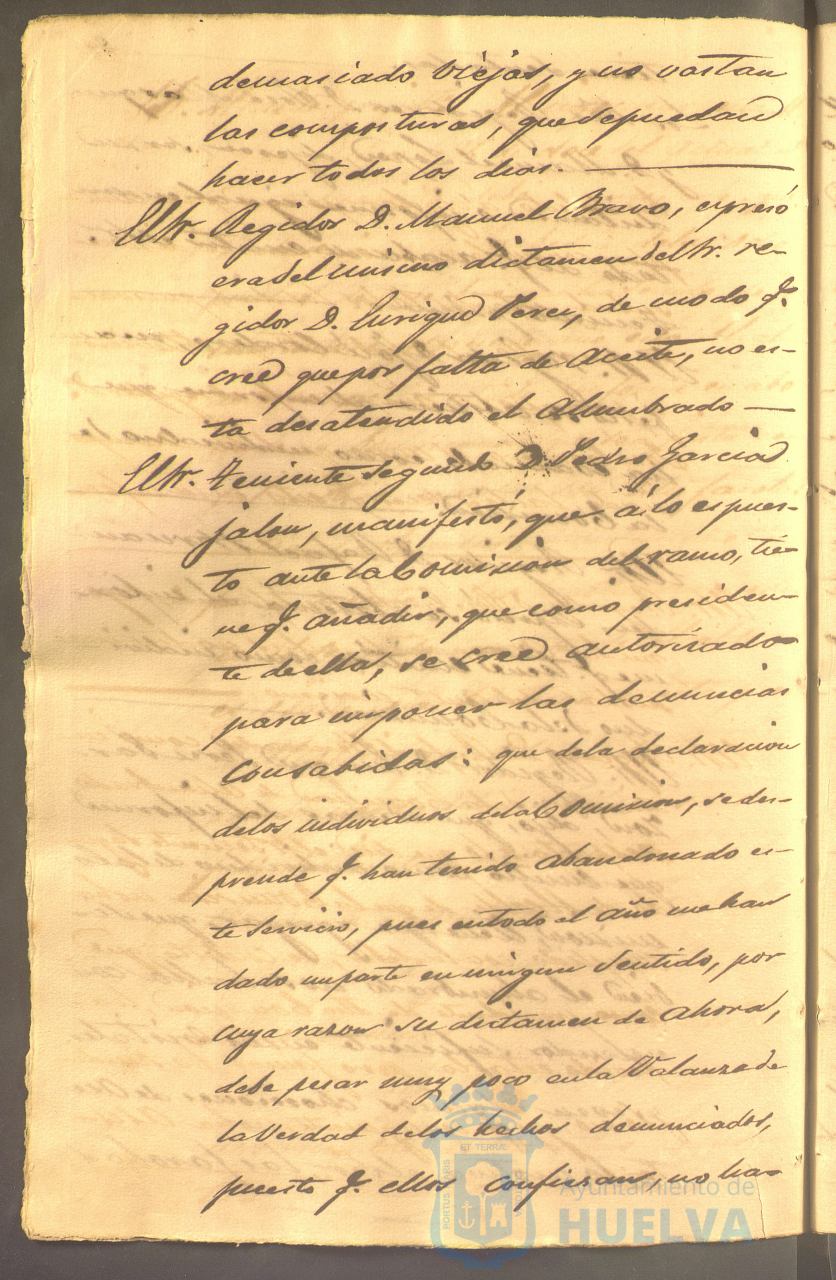 demasiado viejos, y no vastan
las composturas, que se puedan
hacer todos los dias.
El Sr. Regidor D. Manuel Bravo, espresó
era del mismo dictamen del Sr. re-
gidor D. Enrique Perez, de modo q.
creé que por falta de Aceite, no es-
ta desatendido el Alumbrado
El Sr. Teniente segundo D Pedro Garcia
jalon, manifestó, que á lo espues-
to ante la Comision del ramo, tie-
ne q. añadir, que como presiden-
te de ella, se creé autorizado
para imponer las denuncias
consabidas: que de la declaracion
de los individuos de la Comision, se des-
prende q. han tenido abandonado es-
te servicio, pues en todo el año me han
dado un parte en ningun sentido, por
cuya razon su dictamen de ahora,
debe pesar muy poco en la Valanza de
la Verdad de los hechos denunciados,
puesto q. ellos confiesan, no ha-
PORTUS MARIS
ET TERRÆ
Ayuntamiento de
HUELVA